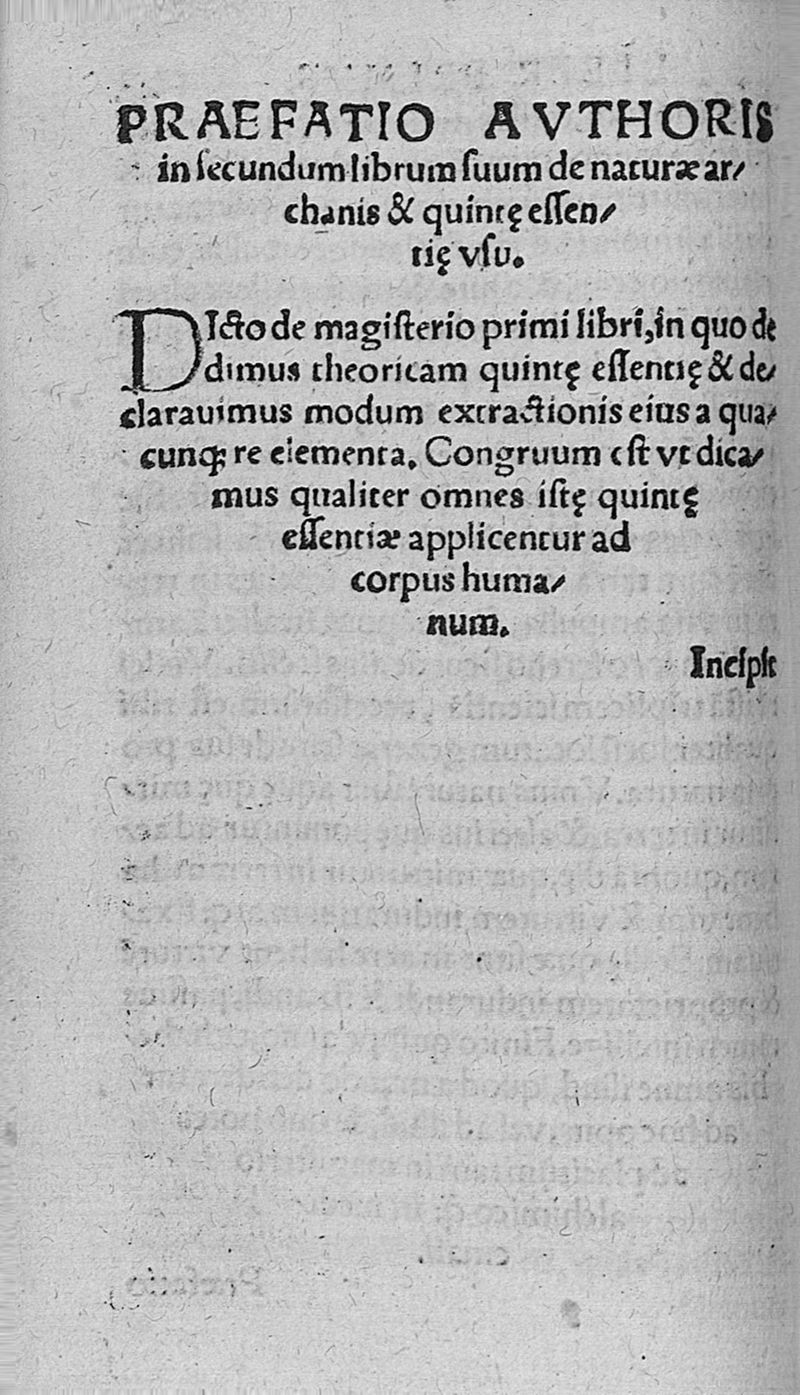 PRAEFATIO AVTHORIS
in ſecundum librum ſuum de naturæ ar⸗
chanis & quintę eſſen⸗
tię vſu.
DIcto de magiſterio primi libri, in quo de
dimus theoricam quintę eſſentię & de⸗
clarauimus modum extractionis eius a qua⸗
cunqꝫ re elementa. Congruum eſt vt dica⸗
mus qualiter omnes iſtę quintę
eſſentiæ applicentur ad
corpus huma⸗
num.
Incipit